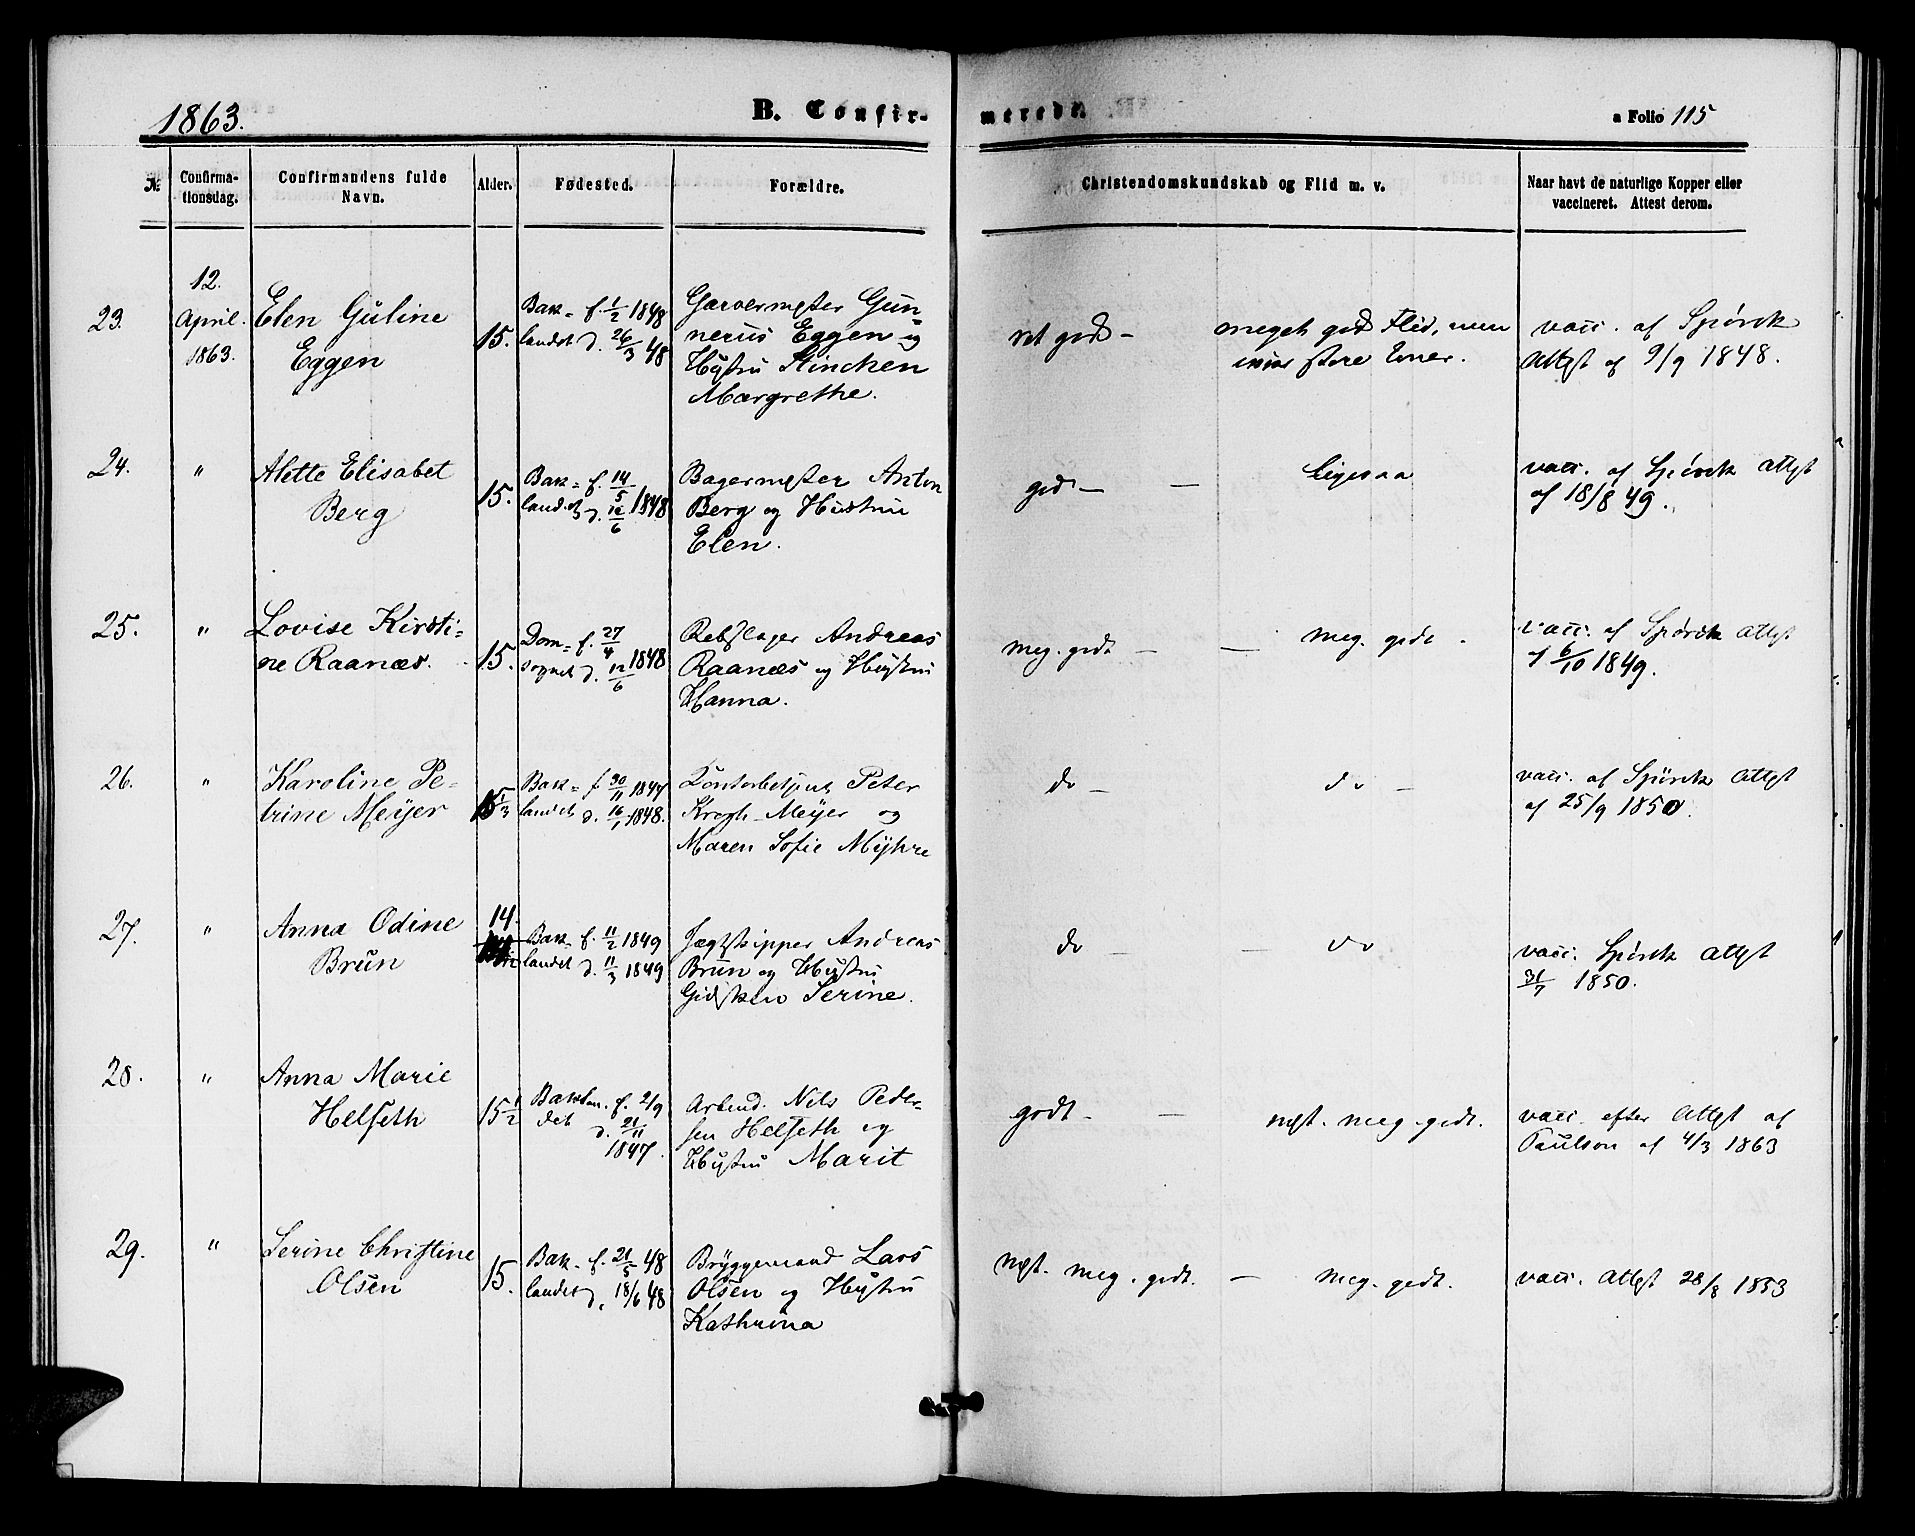 1863.
B. Confirmerede.
a Folio 115
№
Confirma-
tionsdag.
Confirmandens fulde
Navn.
Alder.
Fødested.
Forældre.
Christendomskundskab og Flid m. v.
Naar havt de naturlige Kopper eller
vaccineret. Attest derom.
23.
12.
April.
1863.
Elen Guline
Eggen
15.
Bak= f. 1/2 1848
landet d. 26/3 48
Garvermester Gun=
nerius Eggen og
Hustru Stinchen
Margrethe.
ret godt –
meget god Flid, men
store Evner.
vacc. af Spørck
Attest af 9/9 1848.
24.
"
Alette Elisabet
Berg
15.
Bak= f. 14/5
landet d. 12/6 1848
Bagermester Anton
Berg og Hustru
Elen.
godt – –
ligesaa
vacc. af Spørck Attest
af 18/8 49.
25.
"
Lovise Kirsti=
ne Raanæs.
15.
Dom= f. 27/4
sognet d. 12/6 1848
Rebslager Andreas
Raanæs og Hustru
Hanna.
meg. godt – –
meg. godt.
vacc. af Spørck Attest
af 6/10 1849.
26.
"
Karoline Pe-
trine Meyer
15 1/3
Bak= f. 30/11 1847
landet d. 16/1 1848.
Peter
Krogh Meyer og
Maren Sofie Myhre
do –
do –
vacc. af Spørck Attest
af 25/9 1850.
27.
"
Anna Odine
Brun
14.
Bak= f. 11/2 1849
landet d. 11/3 1849
Jægtskipper Andreas
Brun og Hustru
Gidsken Serine.
do –
do
vacc. Spørck Attest
31/7 1850.
28.
"
Anna Marie
Helseth
15 1/2
Baklan. f. 2/9
det d. 21/11
1847.
Arbmd. Nils Peder-
sen Helseth og
Hustru Marit
godt – –
næst. meg. godt.
vacc. efter Attest af
Paulson af 4/3 1863
29.
"
Serine Christine
Olsen
15.
Bak- f. 21/5 48
landet d. 18/6 48
Bryggemand Lars
Olsen og Hustru
Kathrina
næst. meg. godt. –
meg. godt.
vacc. Attest 28/8 1853